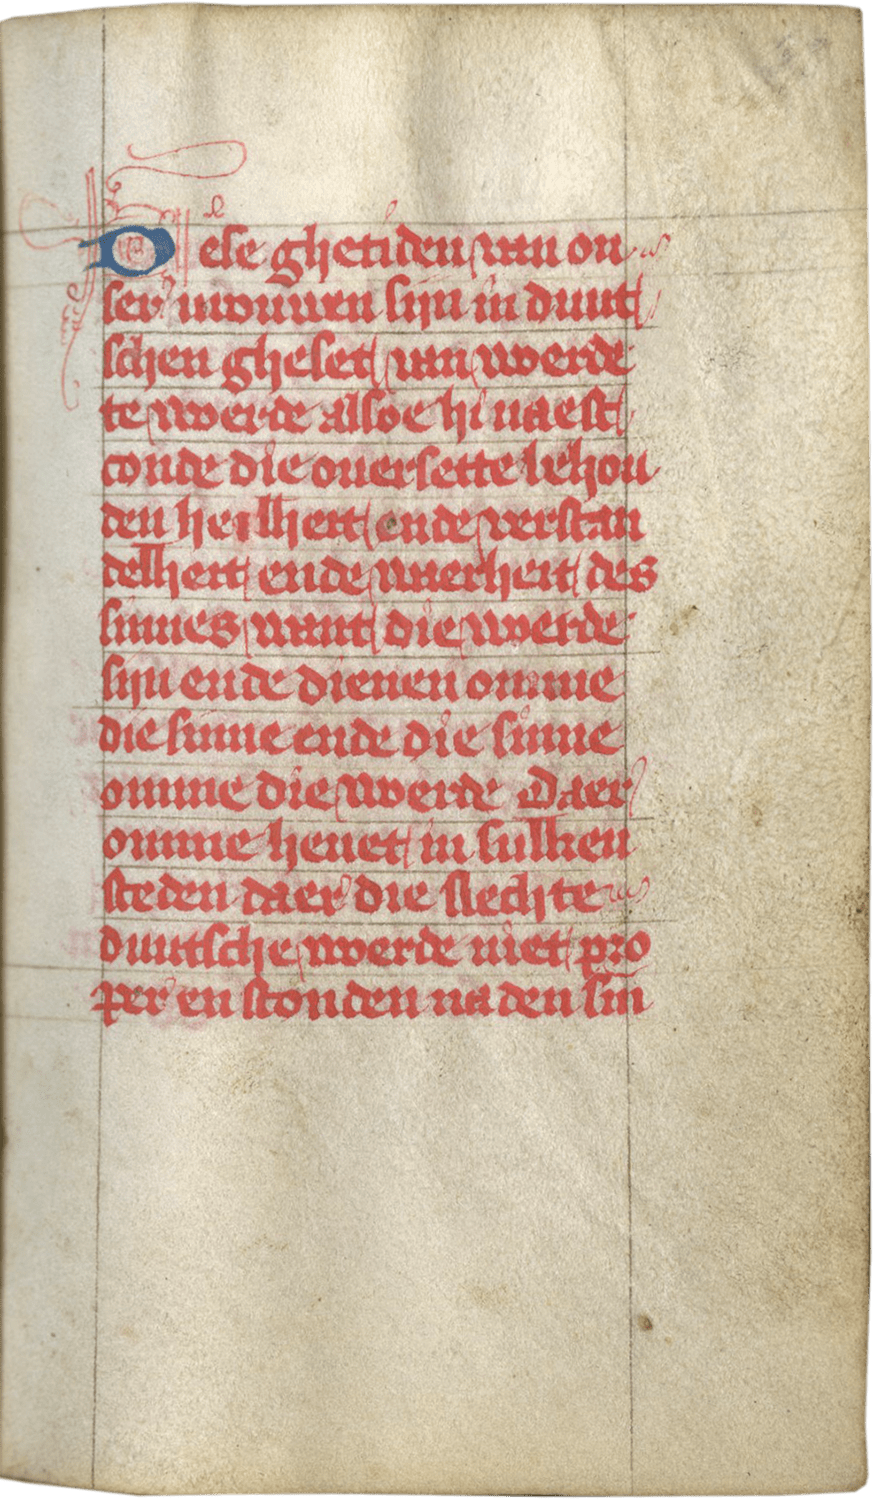 Dese ghetiden van on
ser vrouwen sijn in duut
schen gheset van woerde
te woerde alsoe hi naest
conde diese ouersette behou
den heilheit ende verstan
delheit ende waerheit des
sinnes want die woerde
sijn ende dienen omme
die sinne ende die sinne
omme die woerde Daer
omme heuet in sulken
steden daer die slechte
duutsche woerde niet pro
per en stonden na den sin